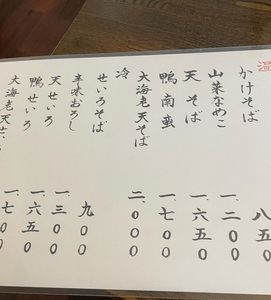 温
かけそば 八五〇
山菜なめこ 一、二〇〇
天そば 一、六五〇
鴨南蛮 一、七〇〇
大海老天そば 二、〇〇〇
冷
せいろそば 九〇〇
辛味おろし 一、三〇〇
天せいろ 一、六五〇
鴨せいろ 一、七〇〇
大海老天せい